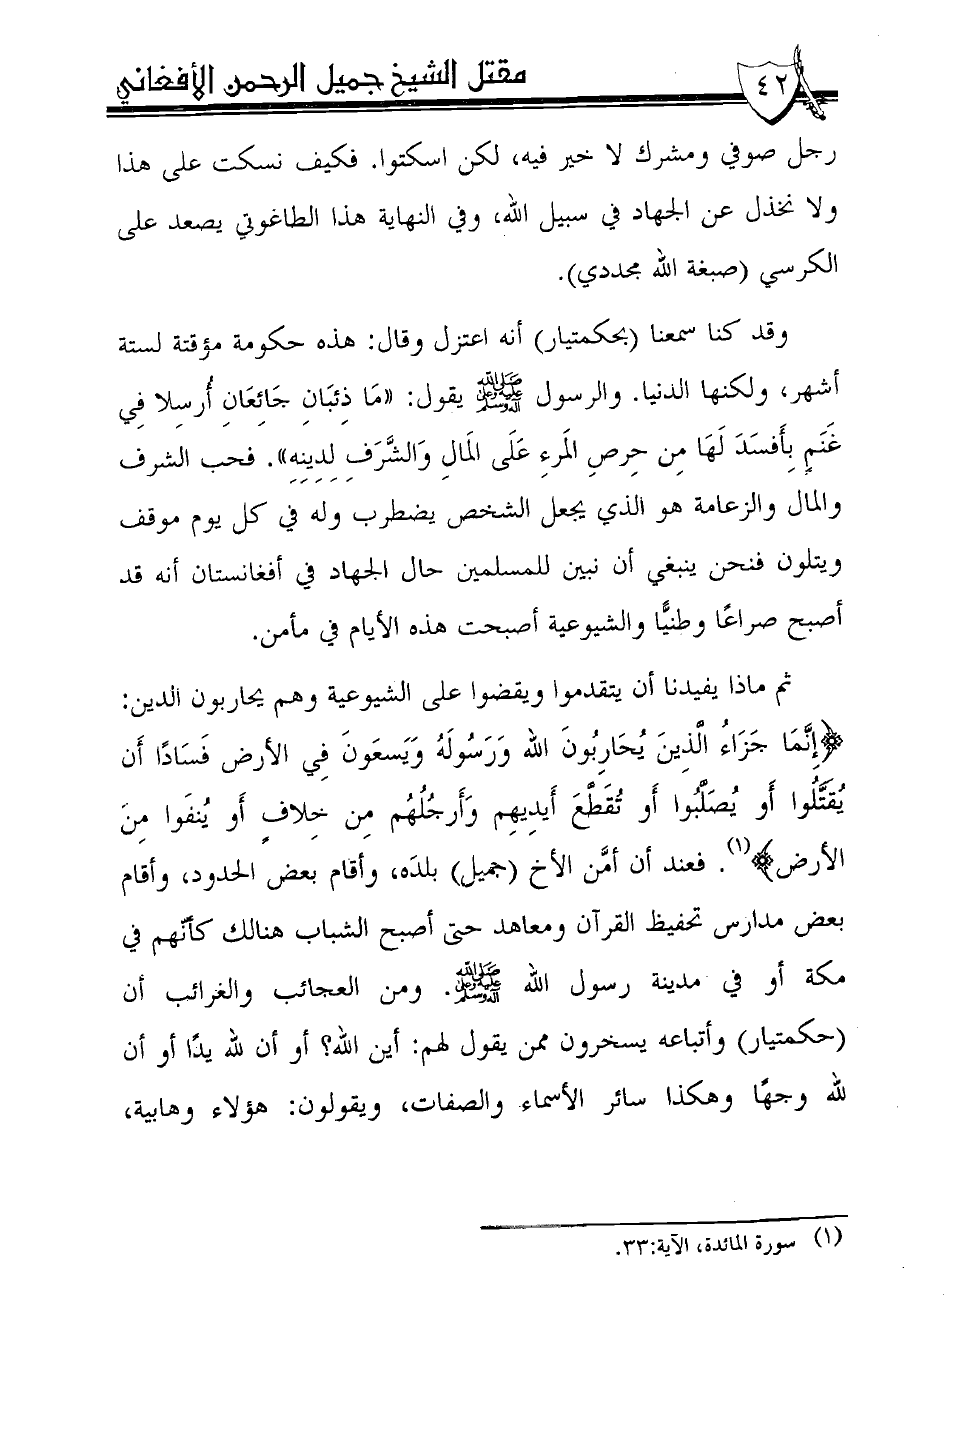 ٤٢
مقتل الشيخ جميل الرحمن الأفغاني
رجل صوفي ومشرك لا خير فيه، لكن اسكتوا. فكيف نسكت على هذا
ولا نخذل عن الجهاد في سبيل الله، وفي النهاية هذا الطاغوتي يصعد على
الكرسي (صبغة الله مجددي).
وقد كنا سمعنا (بحكمتيار) أنه اعتزل وقال: هذه حكومة مؤقتة لستة
أشهر، ولكنها الدنيا. والرسول ﷺ يقول: «مَا ذِئبَانِ جَائِعَانِ أُرسِلا فِي
غَنَمٍ بِأَفسَدَ لَهَا مِن حِرصِ المَرءِ عَلَى المَالِ وَالشَّرَفِ لِدِينِهِ». فحب الشرف
والمال والزعامة هو الذي يجعل الشخص يضطرب وله في كل يوم موقف
ويتلون فنحن ينبغي أن نبين للمسلمين حال الجهاد في أفغانستان أنه قد
أصبح صراعًا وطنيًّا والشيوعية أصبحت هذه الأيام في مأمن.
ثم ماذا يفيدنا أن يتقدموا ويقضوا على الشيوعية وهم يحاربون الدين:
﴿إِنَّمَا جَزَاءُ الَّذِينَ يُحَارِبُونَ الله وَرَسُولَهُ وَيَسعَونَ فِي الأَرضِ فَسَادًا أَن
يُقَتَّلُوا أَو يُصَلَّبُوا أَو تُقَطَّعَ أَيدِيهِم وَأَرجُلُهُم مِن خِلافٍ أَو يُنفَوا مِنَ
الأَرضِ﴾(١). فعند أن أمَّن الأخ (جميل) بلدَه، وأقام بعض الحدود، وأقام
بعض مدارس تحفيظ القرآن ومعاهد حتى أصبح الشباب هنالك كأنّهم في
مكة أو في مدينة رسول الله ﷺ. ومن العجائب والغرائب أن
(حكمتيار) وأتباعه يسخرون ممن يقول لهم: أين الله؟ أو أن لله يدًا أو أن
لله وجهًا وهكذا سائر الأسماء والصفات، ويقولون: هؤلاء وهابية،
(١) سورة المائدة، الآية:٣٣.